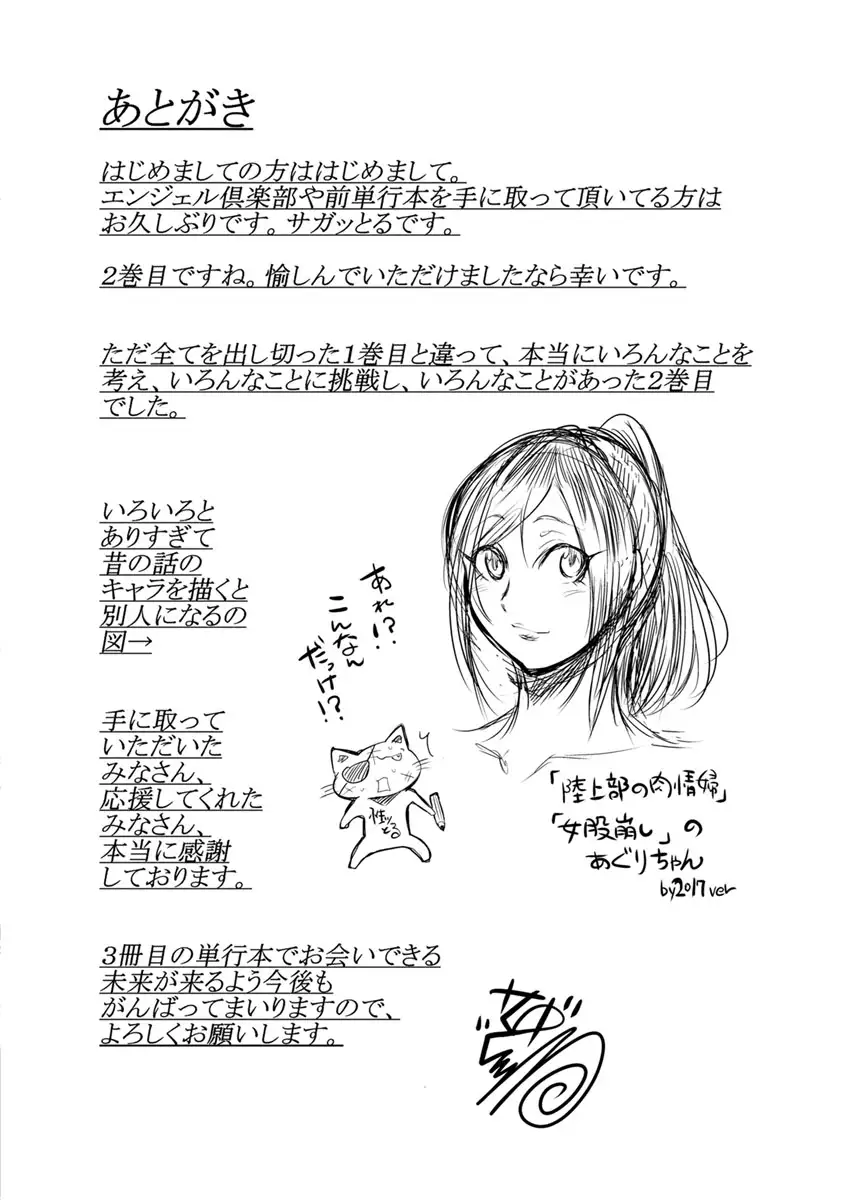 あとがき
はじめましての方ははじめまして。
エンジェル倶楽部や前単行本を手に取って頂いてる方は
お久しぶりです。サガッとるです。
2巻目ですね。愉しんでいただけましたなら幸いです。
ただ全てを出し切った1巻目と違って、本当にいろんなことを
考え、いろんなことに挑戦し、いろんなことがあった2巻目
でした。
いろいろと
ありすぎて
昔の話の
キャラを描くと
別人になるの
図→
あれ!?
こんなん
だっけ!?
手に取って
いただいた
みなさん、
応援してくれた
みなさん、
本当に感謝
しております。
「陸上部の肉情婦」
「女股崩し」の
あぐりちゃん
by2017ver
3冊目の単行本でお会いできる
未来が来るよう今後も
がんばってまいりますので、
よろしくお願いします。